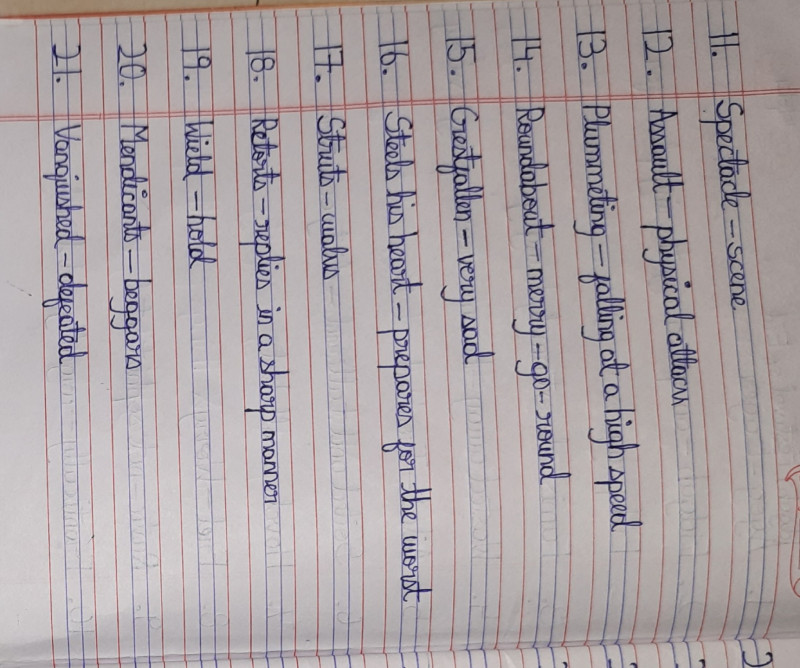 11. Spectacle - scene
12. Assault - physical attack
13. Plummeting - falling at a high speed
14. Roundabout - merry-go-round
15. Crestfallen - very sad
16. Steels his heart - prepares for the worst
17. Struts - walks
18. Retorts - replies in a sharp manner
19. Wield - hold
20. Mendicants - beggars
21. Vanquished - defeated